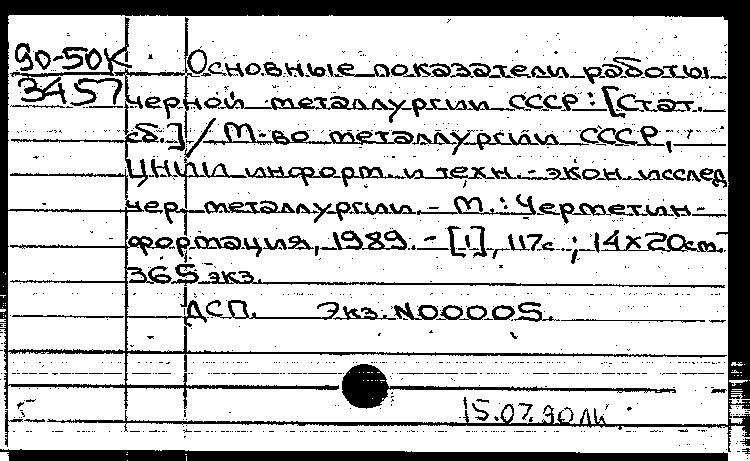 90-50К Основные показатели работы
3457 черной металлургии СССР: [Стат.
сб.] / М-во металлургии СССР,
ЦНИИ информ. и техн.-экон. исслед.
чер. металлургии. - М.: Черметин-
формация, 1989. - [1], 117с.; 14х20см.
365 экз.
ДСП. Экз. N00005.
15.07.90